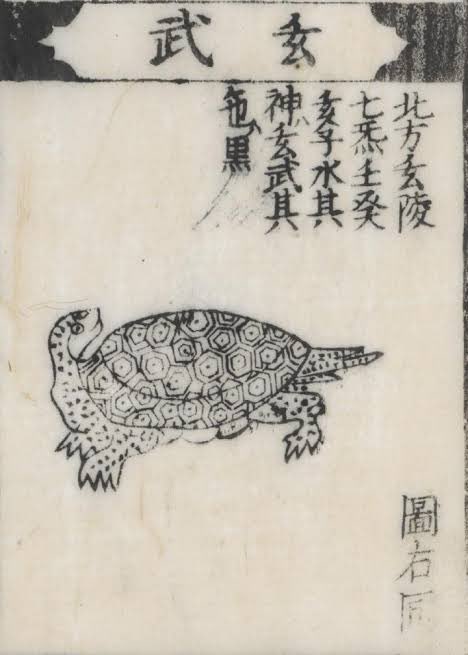 玄武
北方玄陵
七炁壬癸
亥子水其
神玄武其
色黒
圖右